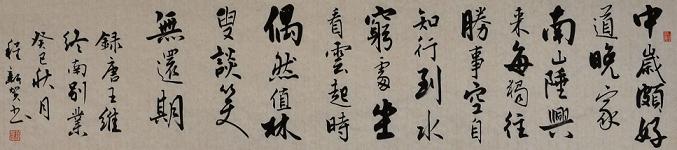 中歲頗好
道晚家
南山陲興
来每獨往
勝事空自
知行到水
窮處坐
看雲起時
偶然值林
叟談笑
無還期
録唐王維
終南別業
癸巳秋月